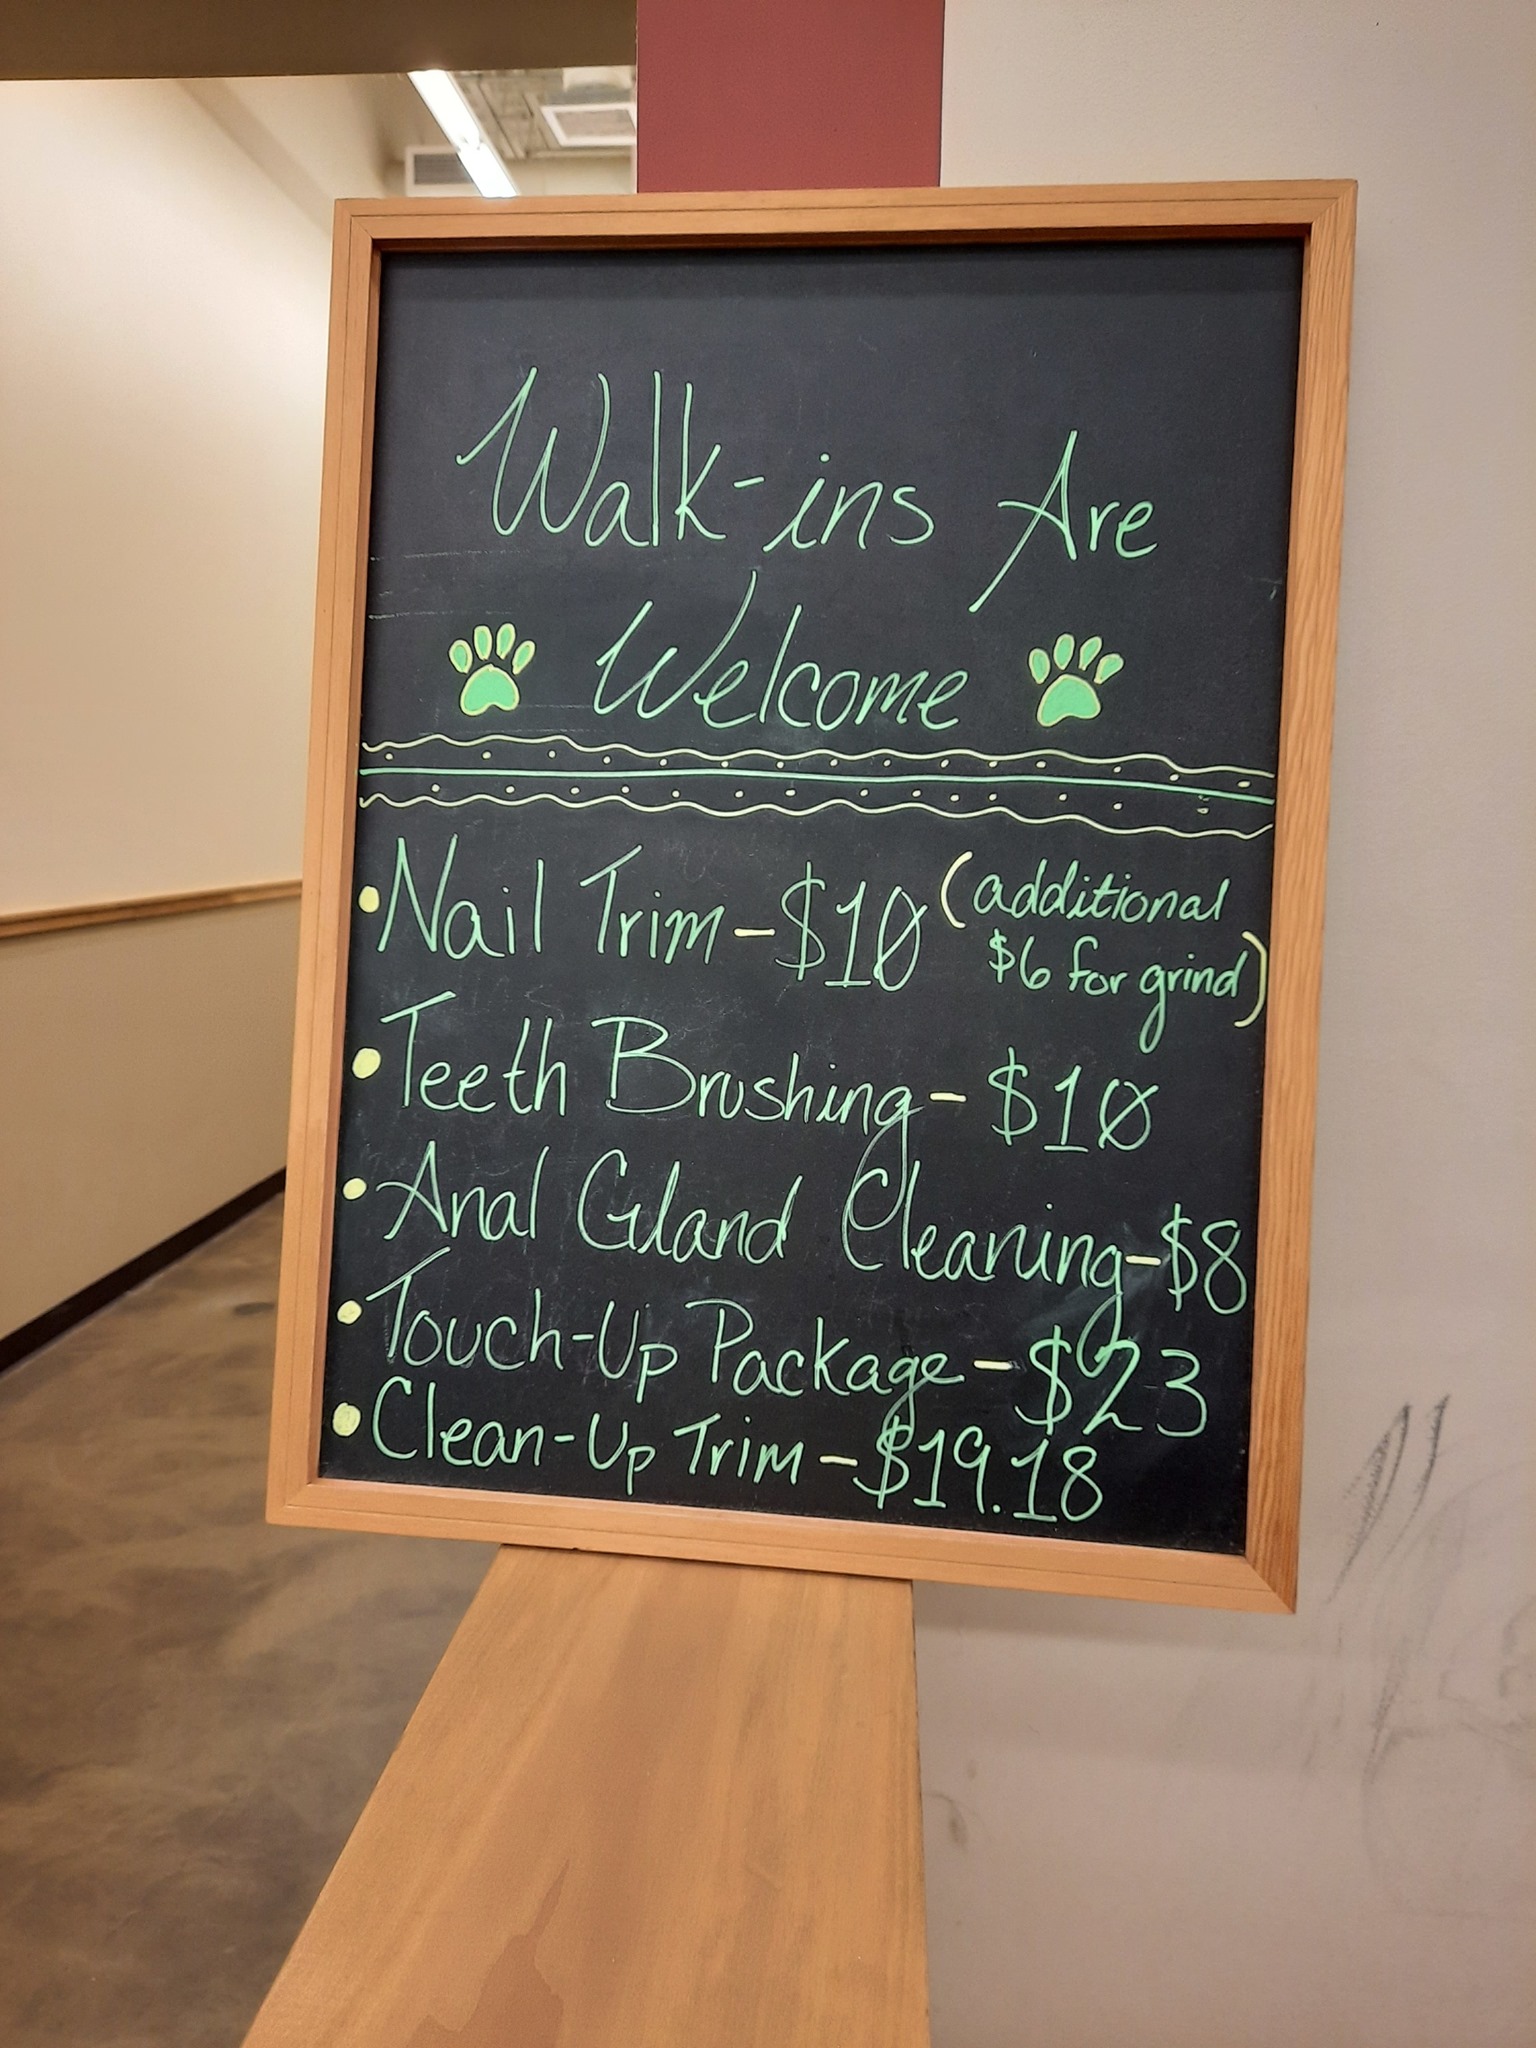 Walk-ins Are
Welcome
• Nail Trim - $10 (additional
$6 for grind)
• Teeth Brushing - $10
• Anal Gland Cleaning - $8
• Touch-Up Package - $23
• Clean-Up Trim - $19.18